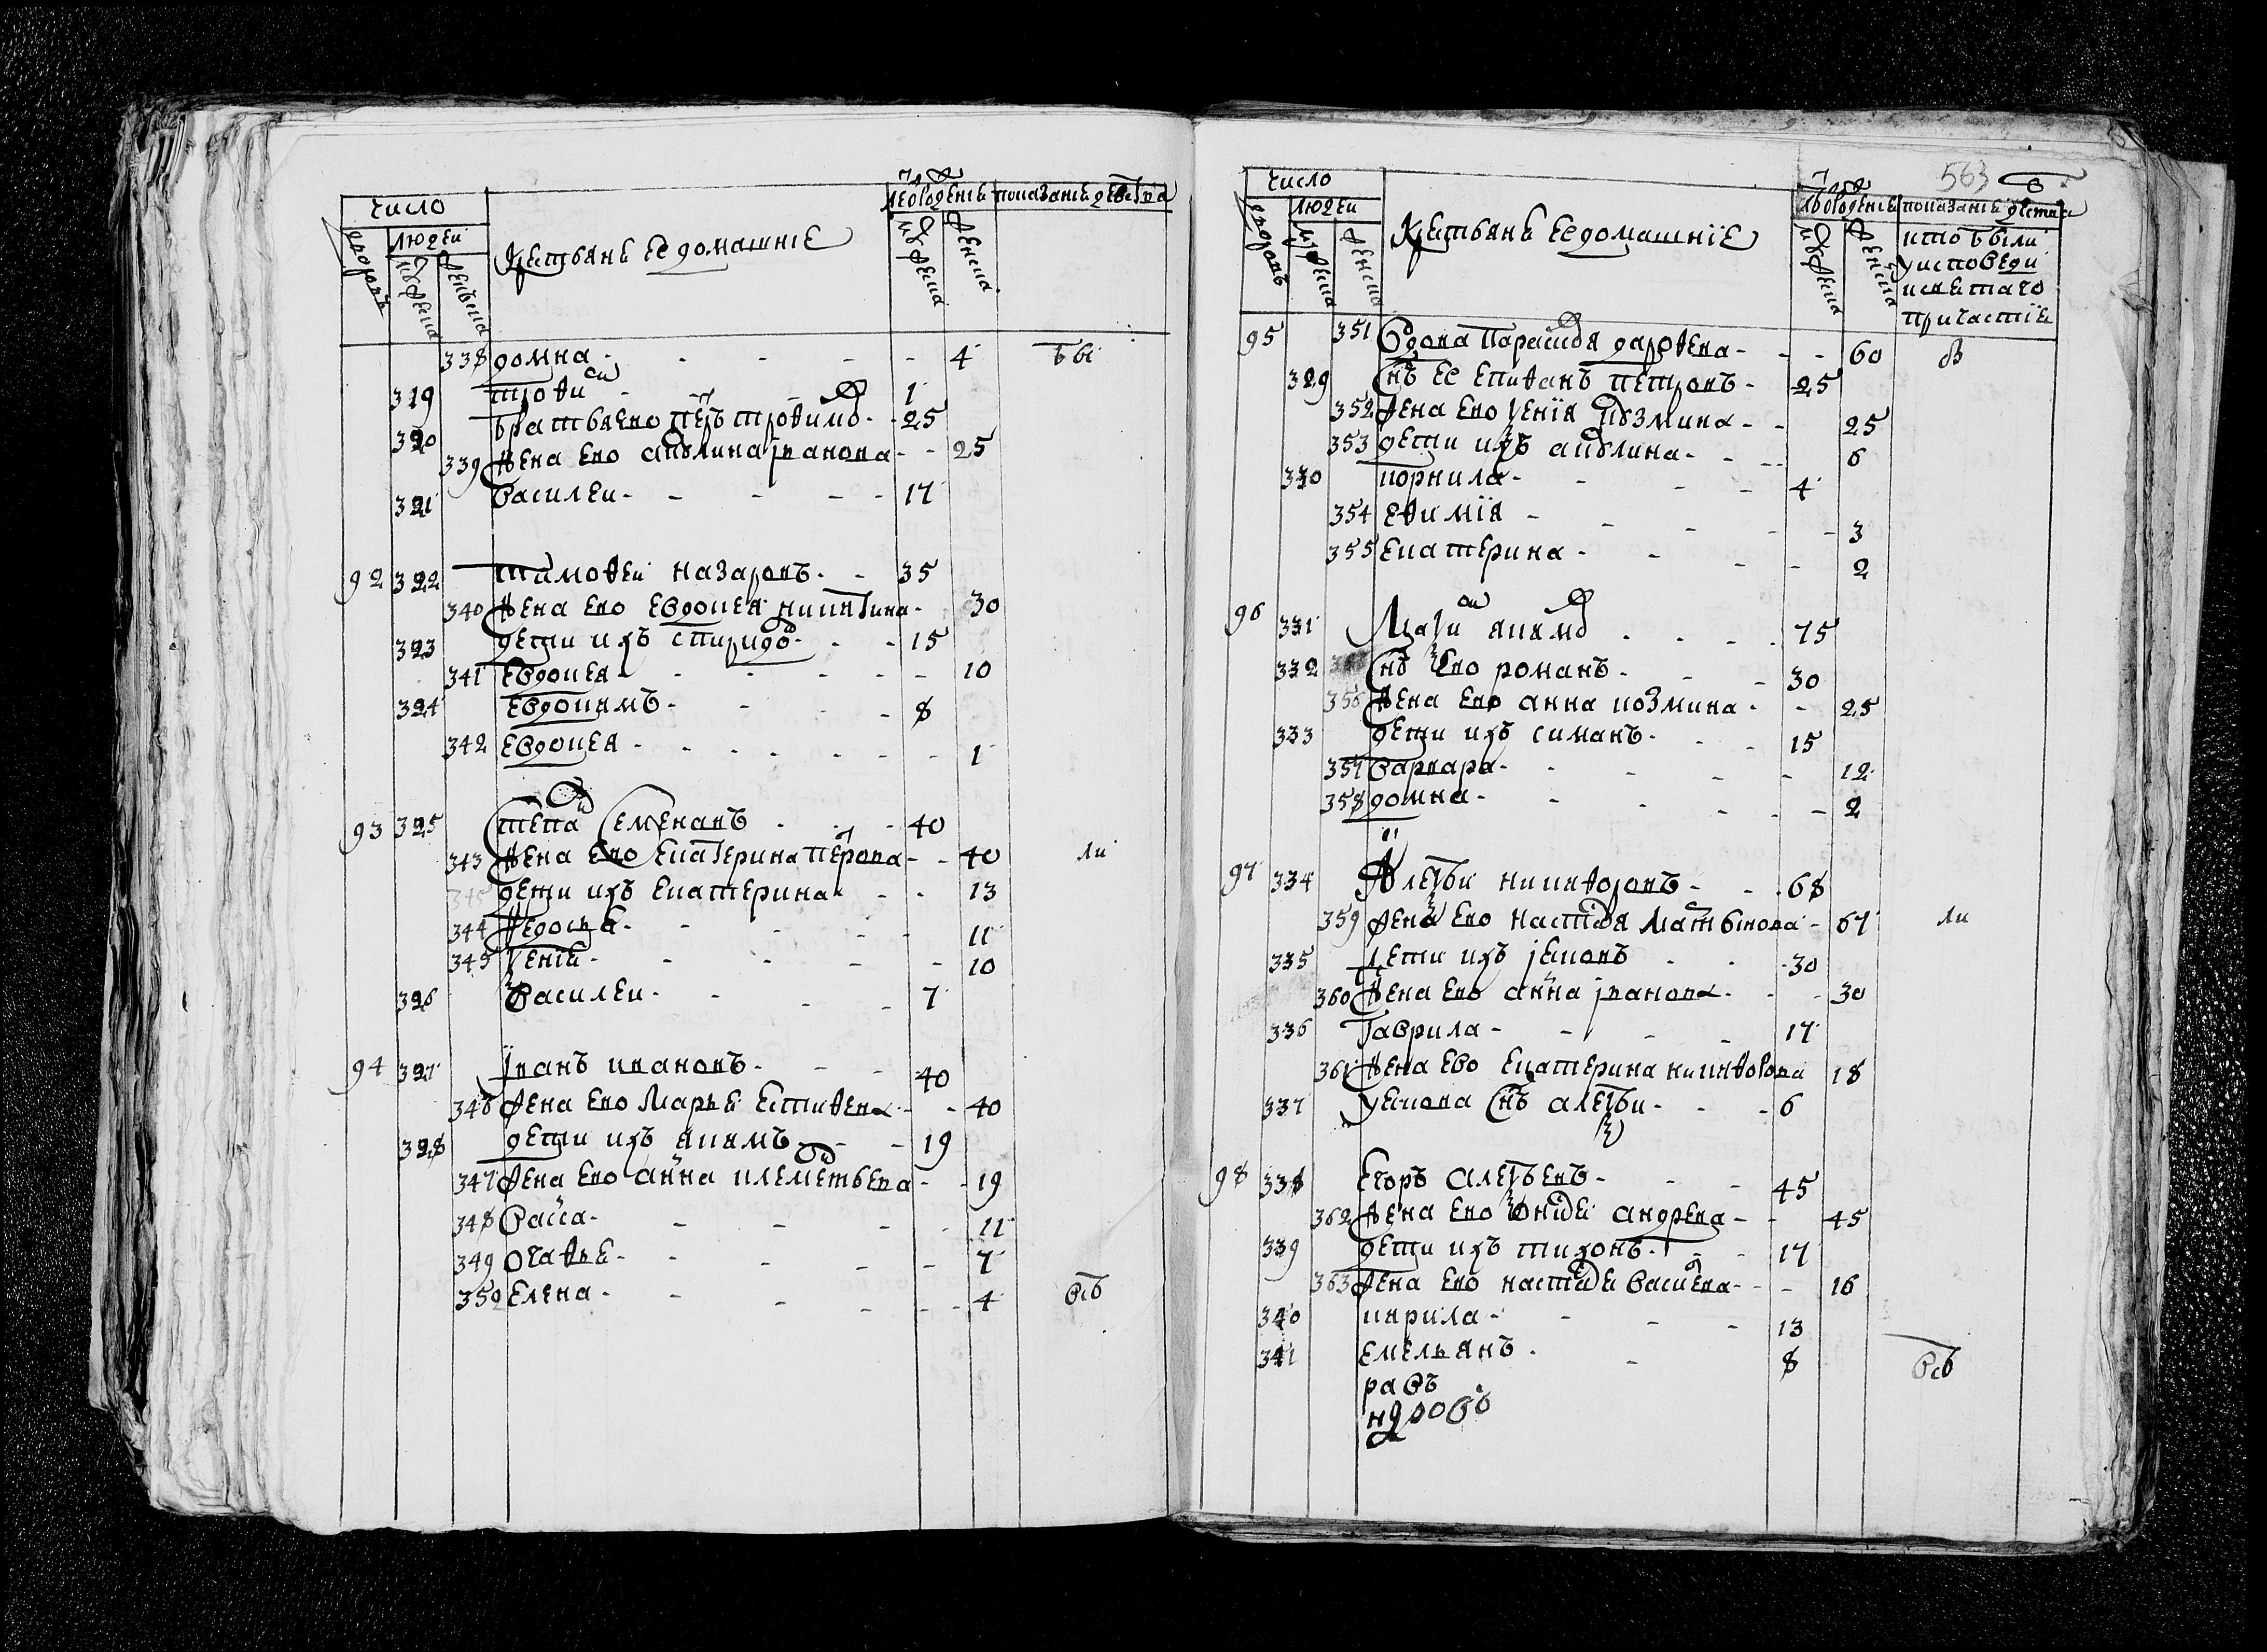 число
люден
дворовъ
мужеска
женска
Крестьяне ее домашние
лѣта
мужеска
женска
показание действа
338 домна - 4 бы
319 трофи 1
320 братья ево петръ трофимо - 25
339 жена ево акулина iванова - 25
321 василеи - 17
92 322 тимофеи назаровъ - 35
340 жена ево евдокея никитина - 30
323 дети ихъ спиридо - 15
341 евдокея - 10
324 евдокимъ - 8
342 евдокея - 1
93 325 степа семенавъ - 40
343 жена ево екатерина петрова - 40 ли
345 дети ихъ екатерина - 13
344 федосье - 11
345 ксение - 10
326 василеи - 7
94 327 iванъ ивановъ - 40
346 жена ево марье естифева - 40
328 дети ихъ якимъ - 19
347 жена ево анна клеметьева - 19
348 раиса - 11
349 огафье - 7
350 елена - 4 всѣ
563
число
люден
дворовъ
мужеска
женска
Крестьяне ее домашнiе
лѣта
мужеска
женска
показание действа
кто были
у исповеди
и светаго
причастiе
95 351 вдова парасковя дарофева - 60 в
329 снъ ее епифанъ петровъ - 25
352 жена ево ксенiя кузмина - 25
353 дети ихъ акулина - 6
330 корнила - 4
354 ефимiя - 3
355 екатерина - 2
96 331 макси акимо 75
332 снъ ево романъ - 30
356 жена ево анна козмина - 25
333 дети ихъ симанъ - 15
357 варвара - 12
358 домна - 2
97 334 Алексеи никифоровъ - 68
359 жена ево настасья мартынова - 67 ли
335 дети ихъ iевковъ 30
360 жена ево анна iванова - 30
336 гаврила - 17
361 жена ево екатерина никифорова 18
337 снъ алексеи - 6
98 338 егоръ алексевъ - 45
362 жена ево андрева - 45
339 дети ихъ тихонъ - 17
363 жена ево настасе васильева - 16
340 кирила - 13
341 емельянъ - 8 всѣ